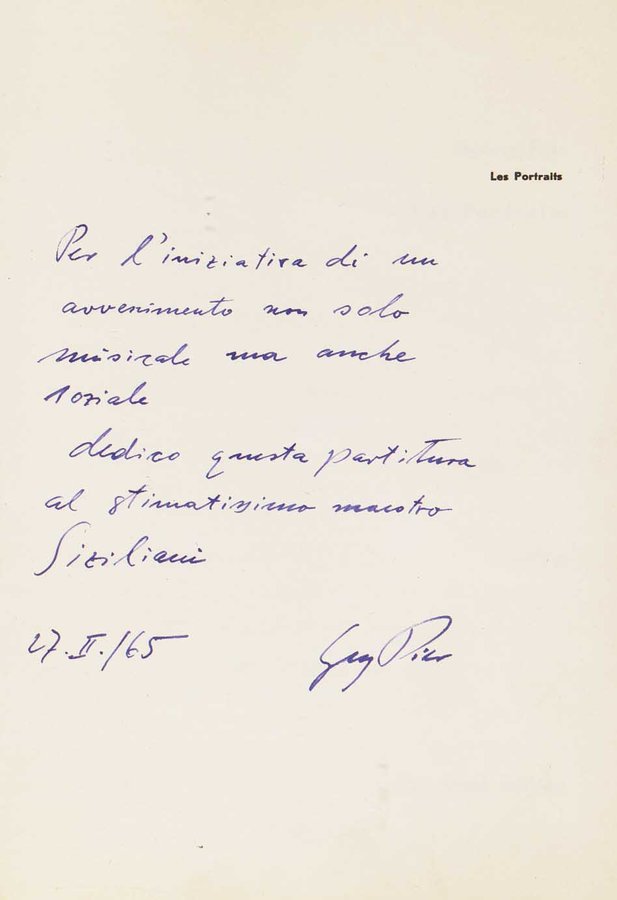 Les Portraits
Per l'iniziativa di un
avvenimento non solo
musicale ma anche
soziale
dedico questa partitura
al stimatissimo maestro
Siziliani
27.II./65